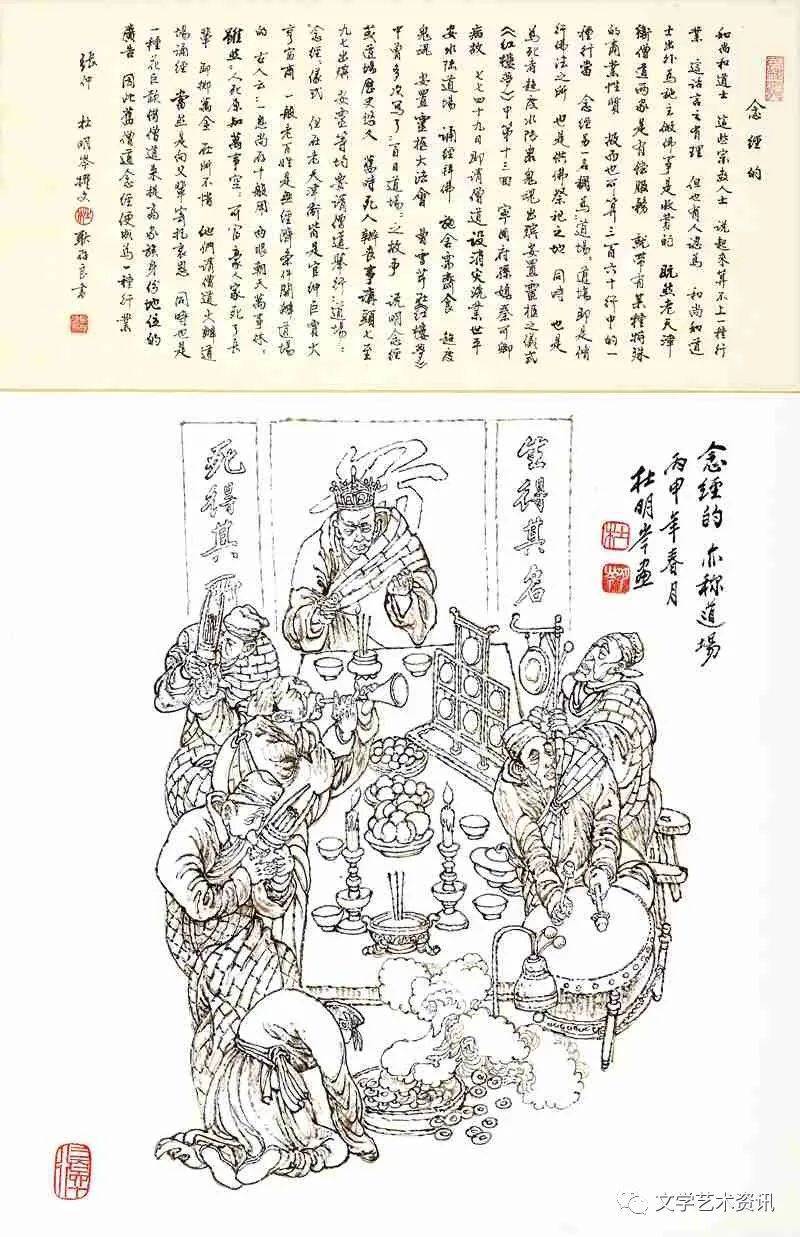 念经的
和尚和道士 这些宗教人士 说起来算不上一种行
业 这话言之有理 但也有人認為 和尚和道
士出外為施主做佛事是收费的 既然老天津
衛僧道两家是有偿服務 就带有某種特殊
的商業性質 故而也可算三百六十行中的一
種行當 念经易又稱為道场 道场即是僧
行佛法之所 也是供佛祭祀之地 同時 也是
為死者超度水陸衆鬼魂出殡安置靈柩之儀式
《红楼梦》中第十三回 寧國府孫媳秦可卿
病故 七七四十九日即请僧道設消灾洗業世平
安水陸道场 誦经拜佛 施食齋食 超度
鬼魂 安置靈柩大法會 曹雪芹在《红楼梦》
中曾多次寫了三百日道场之故事 说明念经
或道场歷史悠久 舊時死人辦丧事講頭七至
九七出殡 安靈等均要请僧道舉行道场
念经儀式 但在老天津衛皆是官绅巨賈大
亨富商 一般老百姓是無经濟条件開辦道场
的 古人云 一息尚存十般用 两眼朝天萬事休
雖然 人死原知萬事空 可富豪人家死了長
輩 即擲萬金在所不惜 他們请僧道大辦道
場誦经 當然是向父輩寄托哀思 同時也是
一種花巨款借僧道来提高家族身份地位的
廣告 因此舊僧道念经便成為一種行業
張仲 杜明岑撰文 耿福良書
念經的 亦称道場
丙申年春月
杜明岑画
生得其名
死得其所
文学艺术资讯